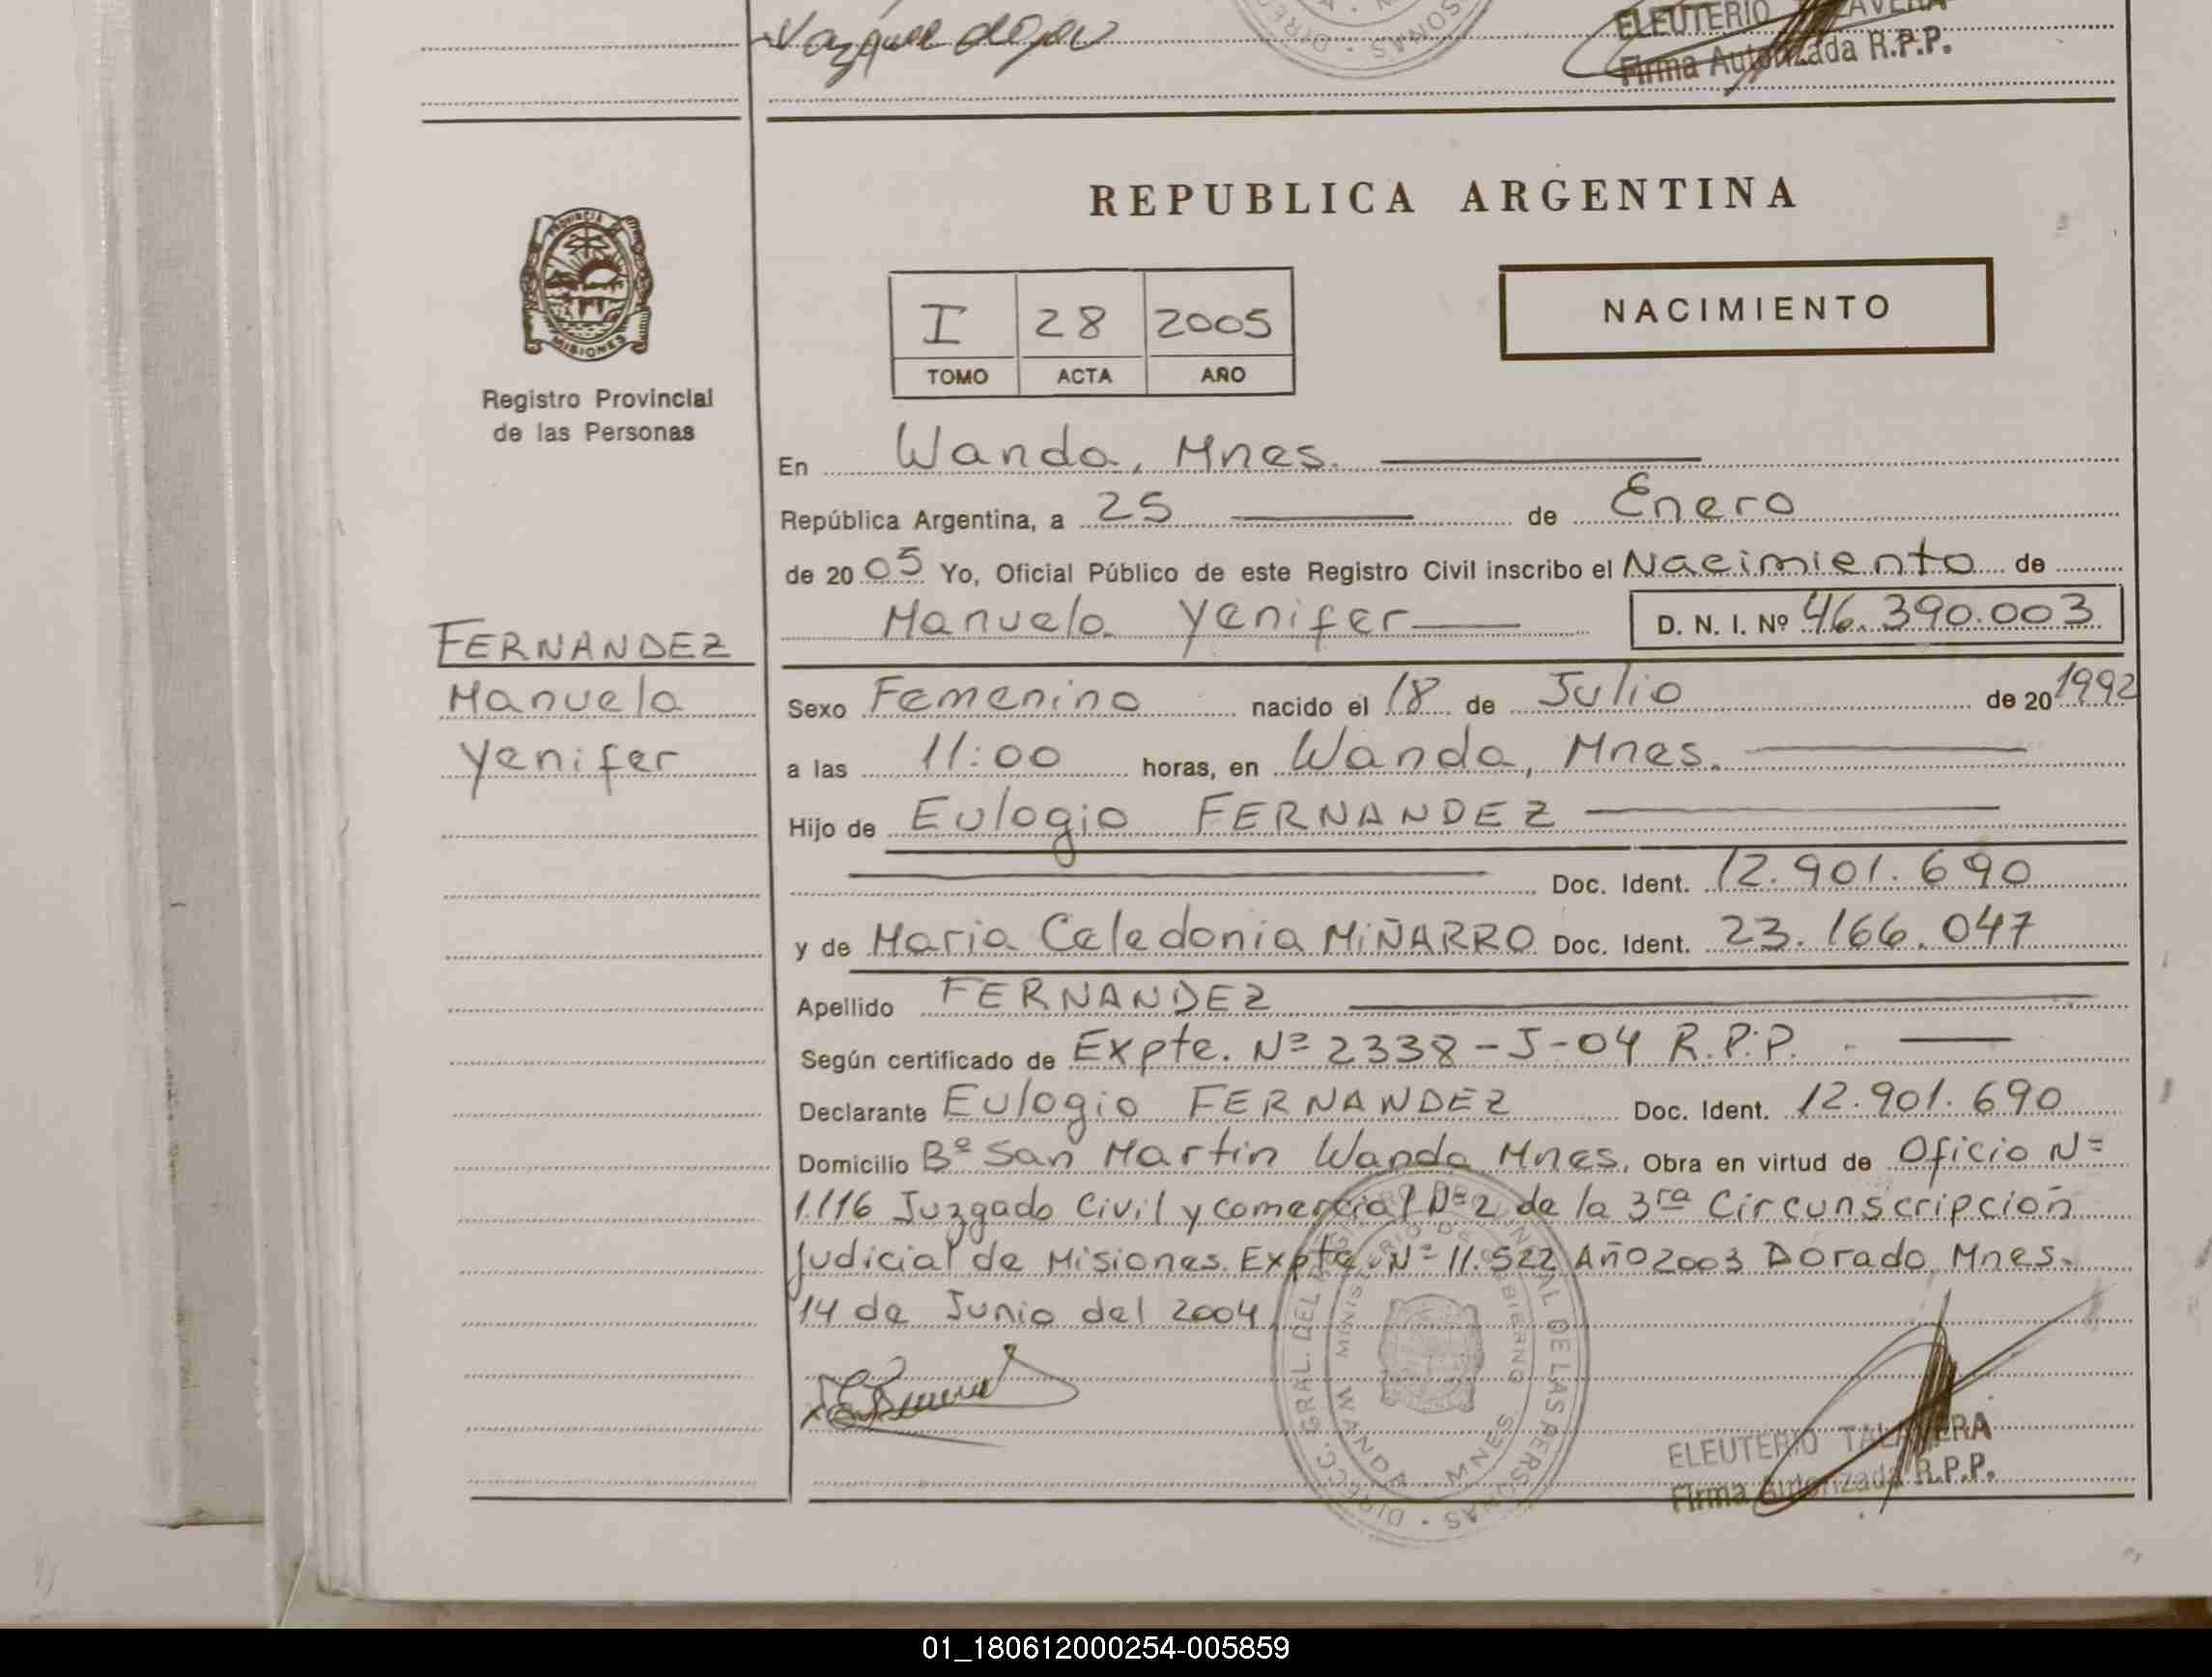 Vazquez
ELEUTERIO TALAVERA
Firma Autorizada R.P.P.
PROVINCIA
MISIONES
Registro Provincial
de las Personas
REPUBLICA ARGENTINA
I 28 2005
TOMO ACTA AÑO
NACIMIENTO
En Wanda, Mnes.
República Argentina, a 25 de Enero
de 2005 Yo, Oficial Público de este Registro Civil inscribo el Nacimiento de
Manuela Yenifer D. N. I. Nº 46.390.003
FERNANDEZ
Manuela
Yenifer
Sexo Femenino nacido el 18 de Julio de 20 1992
a las 11:00 horas, en Wanda, Mnes.
Hijo de Eulogio FERNANDEZ
Doc. Ident. 12.901.690
y de Maria Celedonia MIÑARRO Doc. Ident. 23.166.047
Apellido FERNANDEZ
Según certificado de Expte. Nº 2338-J-04 R.P.P.
Declarante Eulogio FERNANDEZ Doc. Ident. 12.901.690
Domicilio Bº San Martin Wanda Mnes. Obra en virtud de Oficio Nº
1.116 Juzgado Civil y comercial Nº 2 de la 3ra Circunscripción
Judicial de Misiones. Expte. Nº 11.522 Año 2003 Dorado, Mnes.
14 de Junio del 2004
DIRECC. GRAL. DEL REGISTRO PROVINCIAL DE LAS PERSONAS
MINISTERIO DE GOBIERNO
WANDA - MNES
ELEUTERIO TALAVERA
Firma Autorizada R.P.P.
01_180612000254-005859